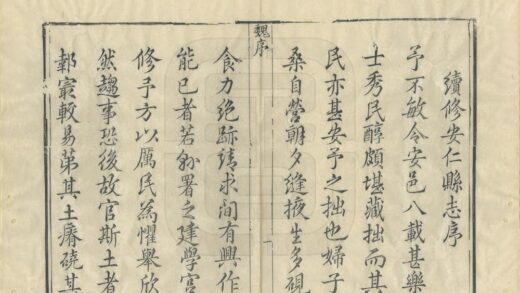 續修安仁縣志序
予不敏令安邑八載甚樂
士秀民醇頗堪藏拙而其
民亦甚安予之拙也婦子
桑自營朝夕縫掖生多硯
魏序
食力絶跡請求間有興作
能已者若署之建學宮
修予方以厲民為懼舉欣
然趨事恐後故官斯土者
較易第其土瘠磽其